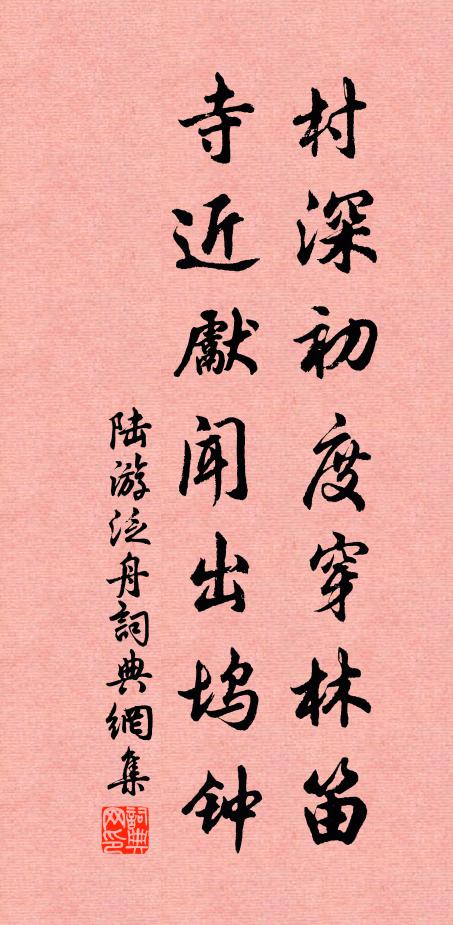 村深初度穿林笛
寺近獻闻出坞钟
陆游泛舟詞典網集
詞典网印